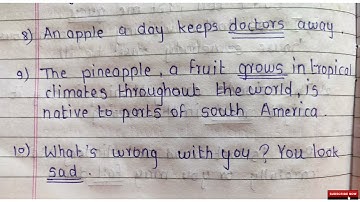 8) An apple a day keeps doctors away.
9) The pineapple, a fruit grows in tropical
climates throughout the world, is
native to parts of south America.
10) What's wrong with you? You look
sad.